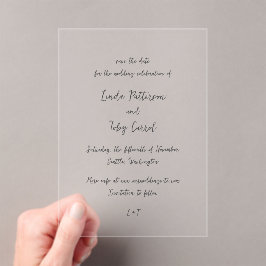 save the date
for the wedding celebration of
Linda Patterson
and
Toby Carrol
Saturday, the fifteenth of November
Seattle, Washington
More info at
Invitation to follow
L + T